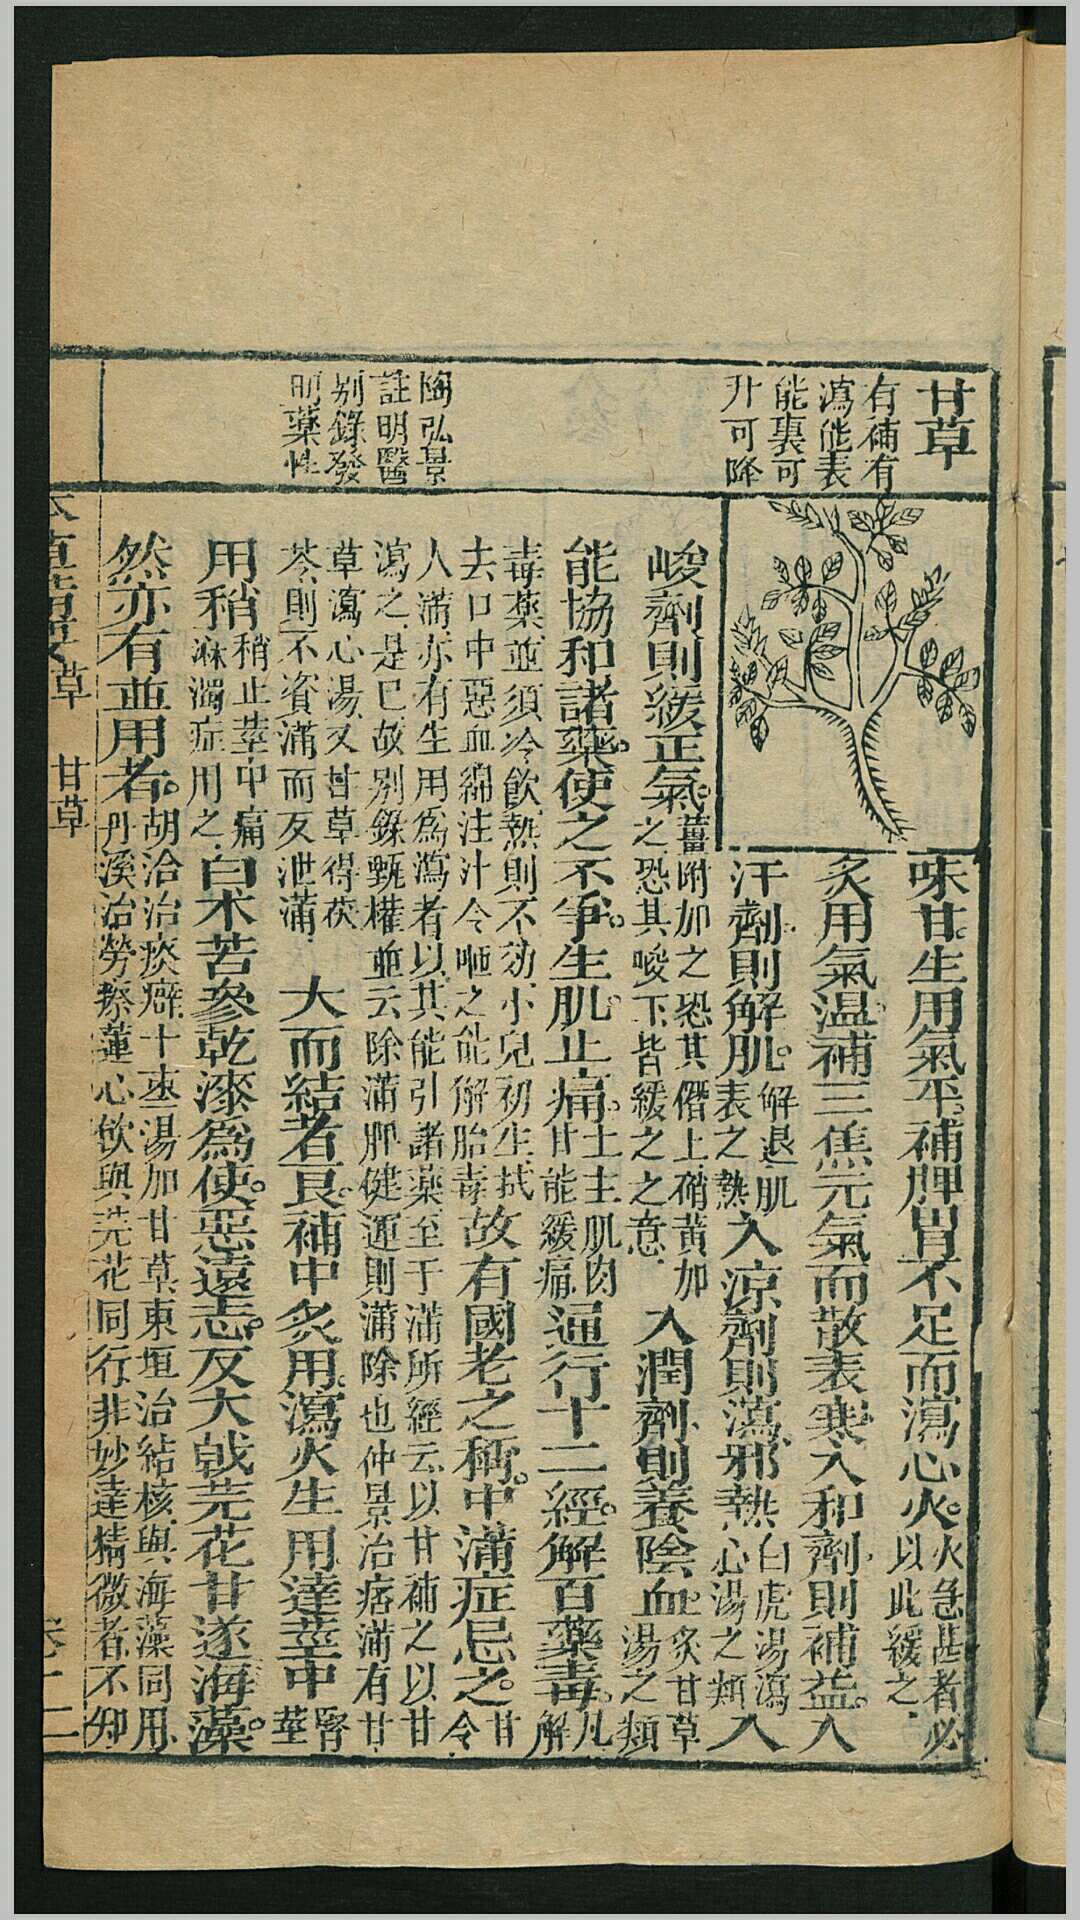 甘草
有補有
瀉能表
能裏可
升可降
陶弘景
註明醫
別錄發
明藥性
味甘。生用氣平。補脾胃不足而瀉心火。火急甚者必以此緩之。
炙用氣温。補三焦元氣而散表寒。入和劑則補益。入
汗劑則解肌。解退肌表之熱入涼劑則瀉邪熱白虎湯瀉心湯之類入
峻劑則緩正氣。薑附加之恐其僭上。硝黃加之恐其峻下。皆緩之之意。入潤劑則養陰血。炙甘草湯之類
能協和諸藥。使之不爭。生肌止痛。土主肌肉甘能緩痛通行十二經。解百藥毒。凡解
毒藥並須冷飲。熱則不効。小兒初生。拭去口中惡血。綿注汁令咂之。能解胎毒故有國老之稱。中滿症忌之。甘令
人滿。亦有生用爲瀉者。以其能引諸藥至于滿所。經云。以甘補之。以甘瀉之。是已。故別錄甄權並云除滿。脾健運則滿除也。仲景治痞滿有甘
草瀉心湯。又甘草得茯苓。則不資滿而反泄滿。大而結者良。補中炙用。瀉火生用。達莖中腎莖
用稍。稍止莖中痛淋濁症用之。白术苦參乾漆爲使。惡遠志。反大戟芫花甘遂海藻。
然亦有並用者。胡洽治痰癖。十棗湯加甘草。東垣治結核。與海藻同用。丹溪治勞瘵。蓮心飲與芫花同行。非妙達精微者。不
草
甘草